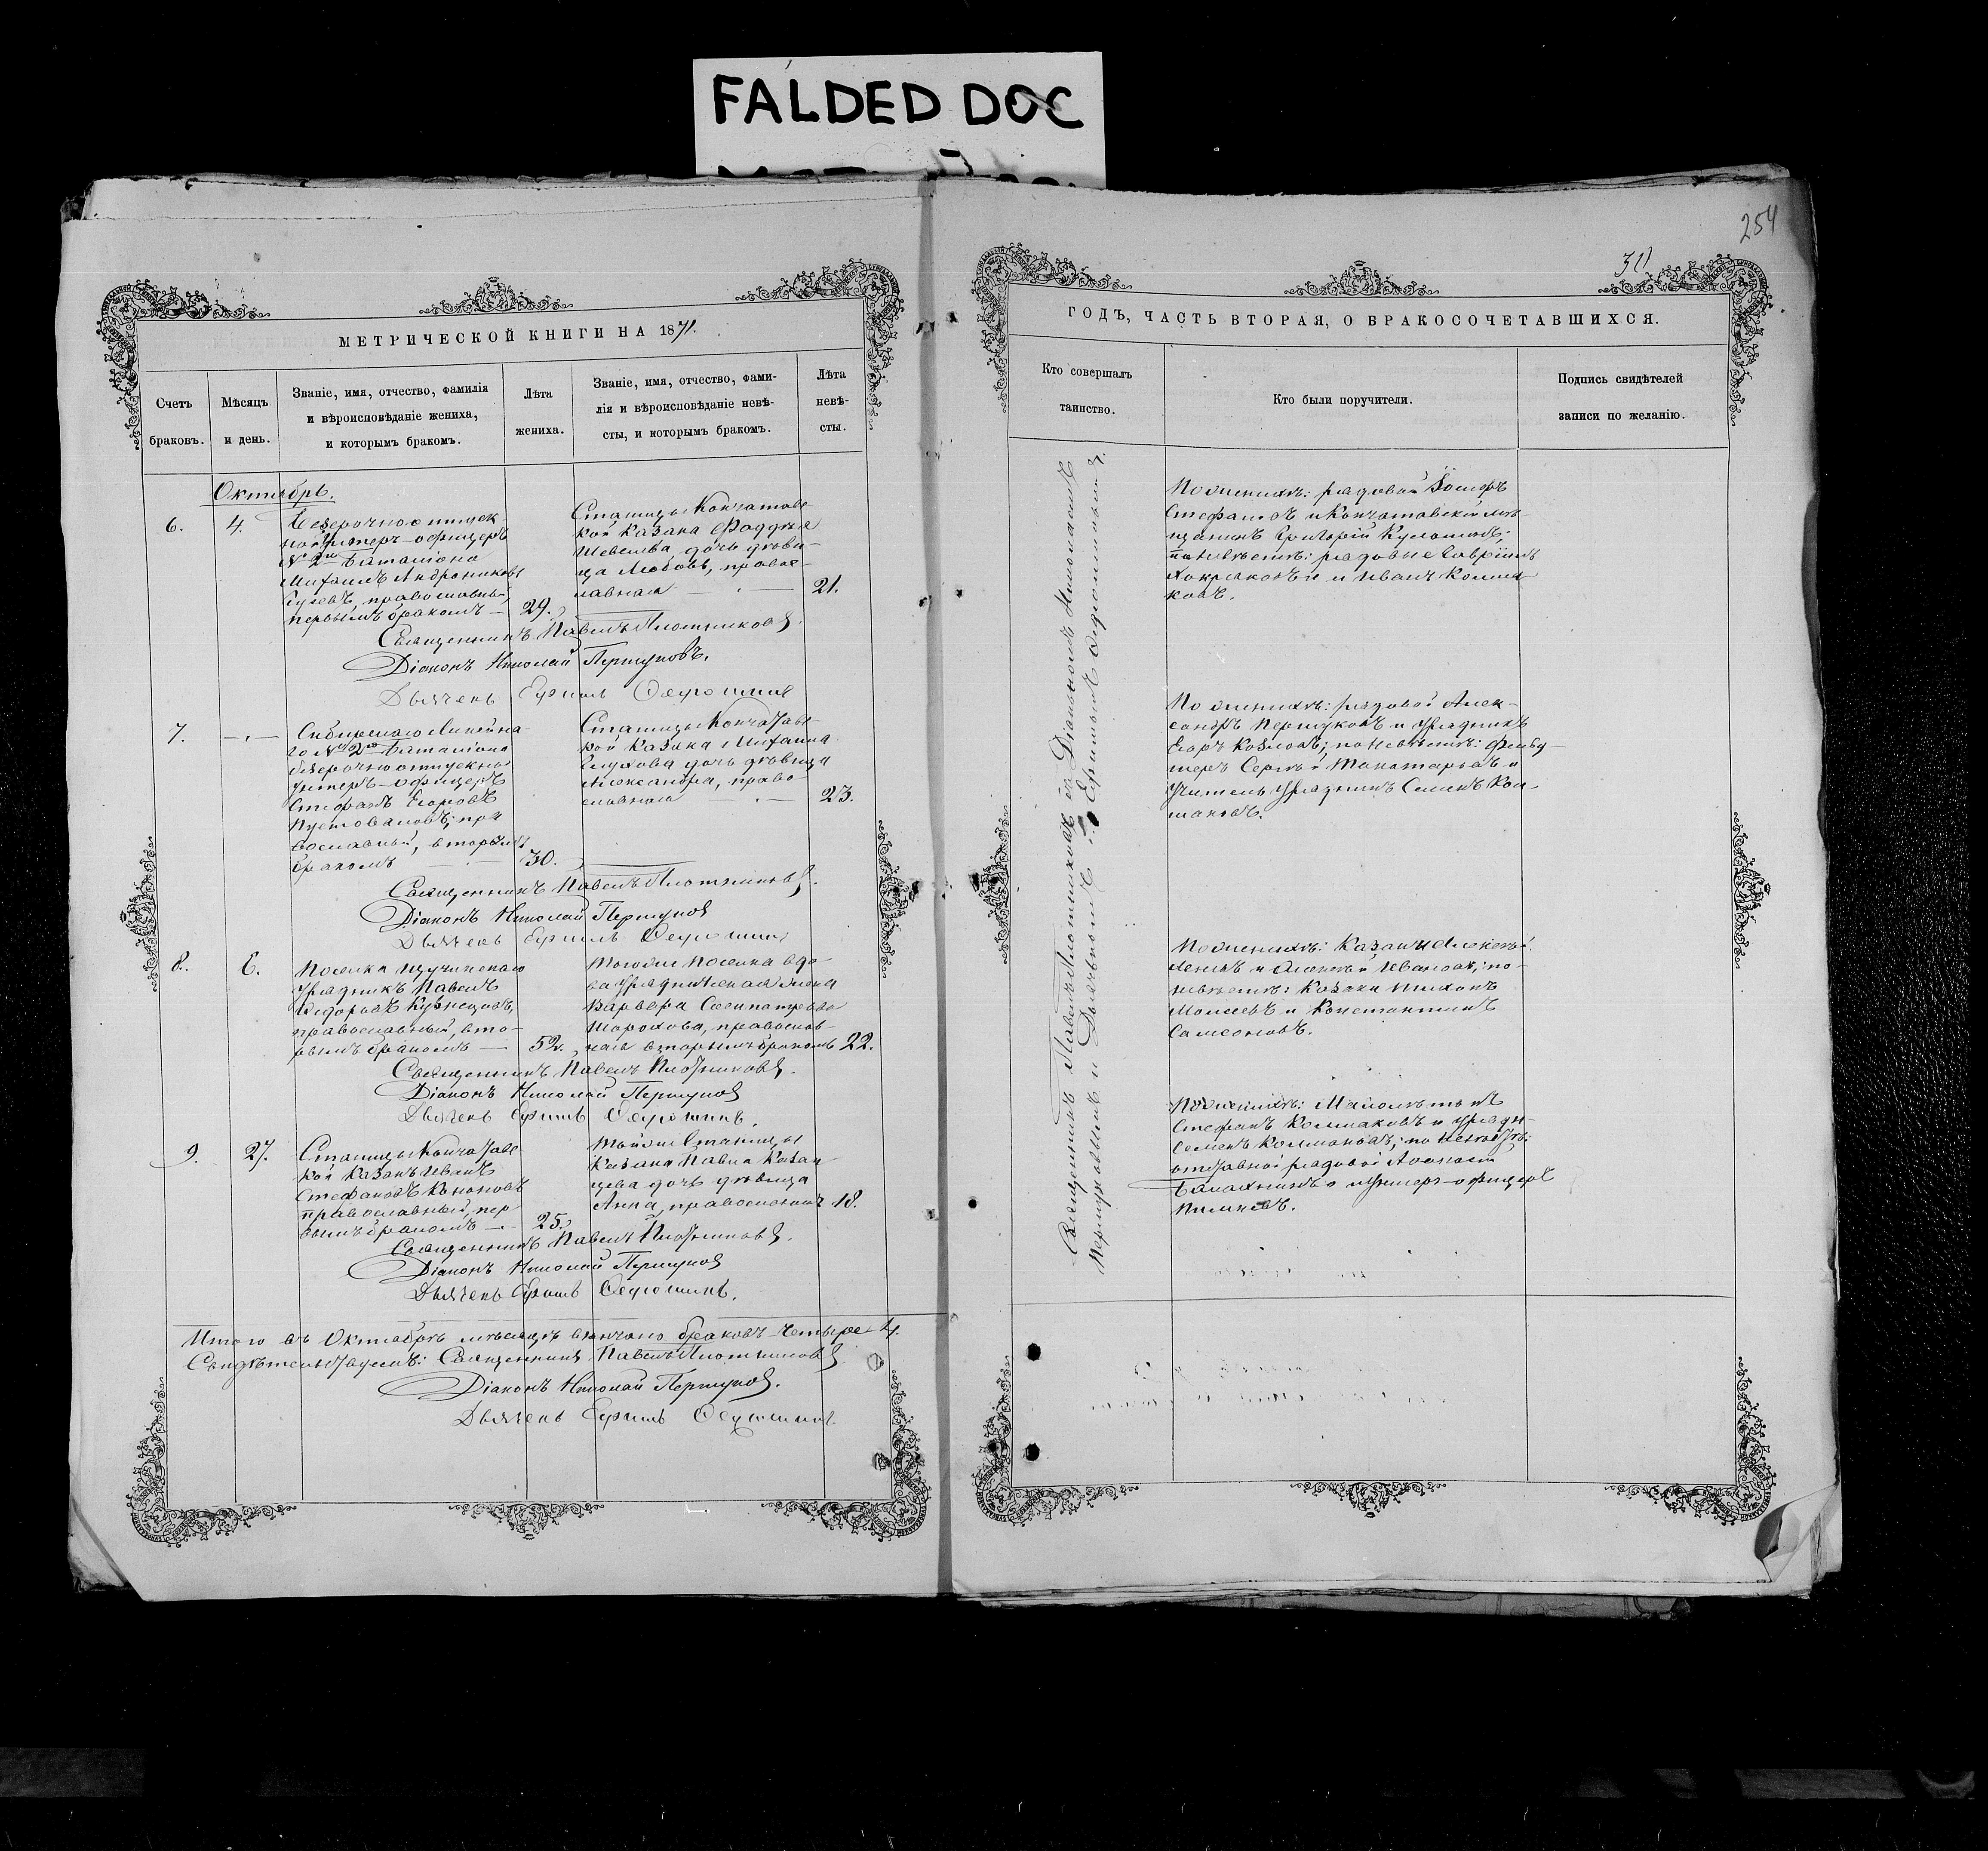 FALDED DOC
254
МЕТРИЧЕСКОЙ КНИГИ НА 1871.
Счетъ
браковъ.
Мѣсяцъ
и день.
Званіе, имя, отчество, фамилія
и вѣроисповѣданіе жениха,
и которымъ бракомъ.
Лѣта
жениха.
Званіе, имя, отчество, фами-
лія и вѣроисповѣданіе невѣ-
сты, и которымъ бракомъ.
Лѣта
невѣ-
сты.
Октябрь.
6.
4.
унтеръ-офицеръ
баталіона
Михаилъ Андрониковъ
первымъ бракомъ —
29.
Станицы Кокчетавс-
кой казака Фаддея
дочь дѣви-
ца Любовь, правос-
лавная — . —
21.
Священникъ Павелъ Плотниковъ.
Діаконъ Николай Пермуновъ.
Дьячекъ Ефимъ
7.
— . —
Сибирскаго Линейна-
го № 2го баталіона
безсрочноотпускной
унтеръ-офицеръ
Стефанъ Егоровъ
Пустоваловъ, пра-
вославный, вторымъ
бракомъ —
30.
Станицы Кокчетавс-
кой казака Михаила
дочь дѣвица
Александра, право-
славная — . —
23.
Священникъ Павелъ Плотниковъ.
Діаконъ Николай Пермуновъ
Дьячекъ Ефимъ
8.
6.
Поселка Щучинскаго
Урядникъ Павелъ
Федоровъ Кузнецовъ,
православный, вто-
рымъ бракомъ —
52.
Тогоже поселка вдо-
ва Урядническая жена
Варвара Сосипатрова
Шорохова, православ-
ная вторымъ бракомъ
22.
Священникъ Павелъ Плотниковъ.
Діаконъ Николай Пермуновъ
Дьячекъ Ефимъ
9.
27.
Станицы Кокчетавс-
кой казакъ Иванъ
Стефановъ Кононовъ
православный, пер-
вымъ бракомъ —
25.
Тойже станицы
казака Павла Казан-
цева дочь дѣвица
Анна, православная
18.
Священникъ Павелъ Плотниковъ.
Діаконъ Николай Пермуновъ
Дьячекъ Ефимъ
Итого въ Октябрѣ мѣсяцѣ вѣнчано браковъ четыре 4.
Свидѣтельствуемъ: Священникъ Павелъ Плотниковъ
Діаконъ Николай Пермуновъ.
Дьячекъ Ефимъ
ГОДЪ, ЧАСТЬ ВТОРАЯ, О БРАКОСОЧЕТАВШИХСЯ.
Кто совершалъ
таинство.
Кто были поручители.
Подпись свидѣтелей
записи по желанію.
Священникъ Павелъ Плотниковъ съ Діакономъ Николаемъ
Пермуновымъ и Дьячкомъ Ефимомъ
По женихѣ: рядовой
Стефановъ и Кокчетавскій мѣ-
щанинъ Григорій
по невѣстѣ: рядовые
и Иванъ Колма-
ковъ.
По женихѣ: рядовой Алек-
сандръ Пермуновъ и Урядникъ
Егоръ Козловъ; по невѣстѣ:
Сергѣй и
Учитель Урядникъ Семенъ Кол-
маковъ.
По женихѣ: казаки Алексѣй
и Алексѣй Ивановъ; по
невѣстѣ: казаки Тихонъ
Моисеевъ и Константинъ
Самсоновъ.
По женихѣ: Малолѣтокъ
Стефанъ Колмаковъ и Урядн.
Семенъ Колмаковъ; по невѣстѣ:
отставной рядовой
и унтеръ-офицеръ